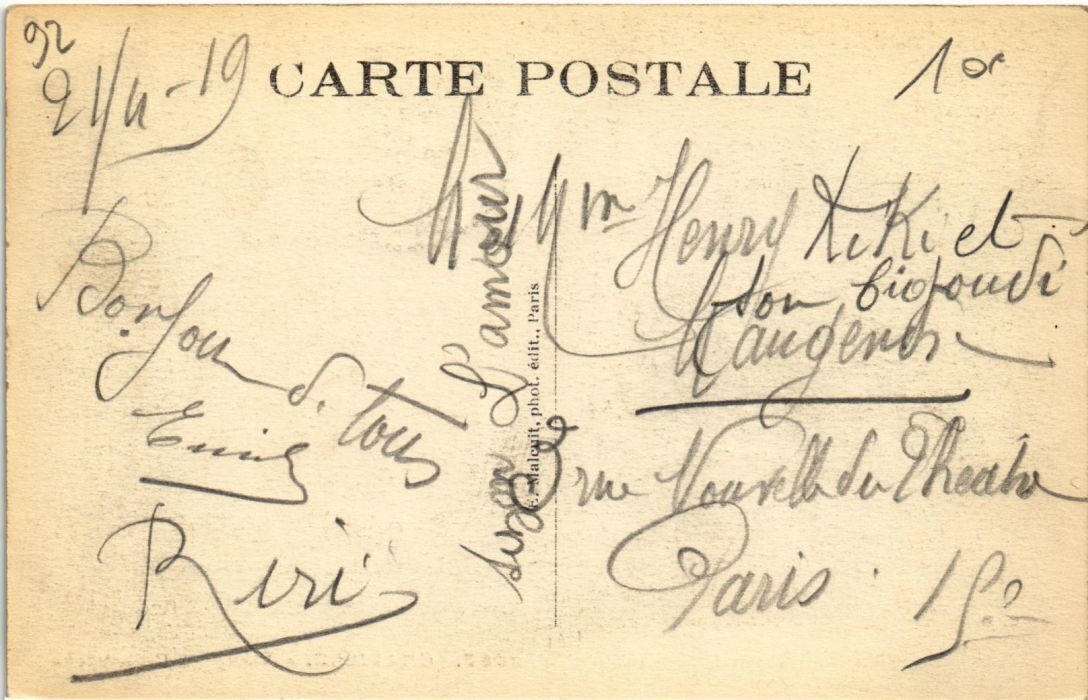 92
21/4-19
CARTE POSTALE
1 or
Bonjou
d. tous
Emile
Riri
L'amour
Malcuit, phot. édit., Paris
Mr Mm Henry Kiki et
ton bigoudi
Maugenot
3 rue Nouvelle du Theatre
Paris. 15e